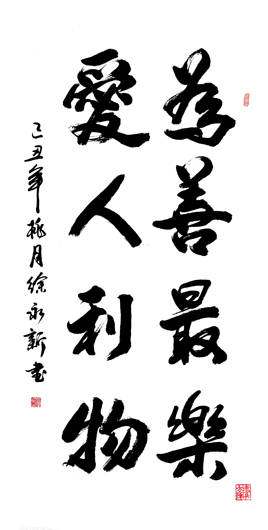 為善最樂
愛人利物
己丑年桃月徐永新書